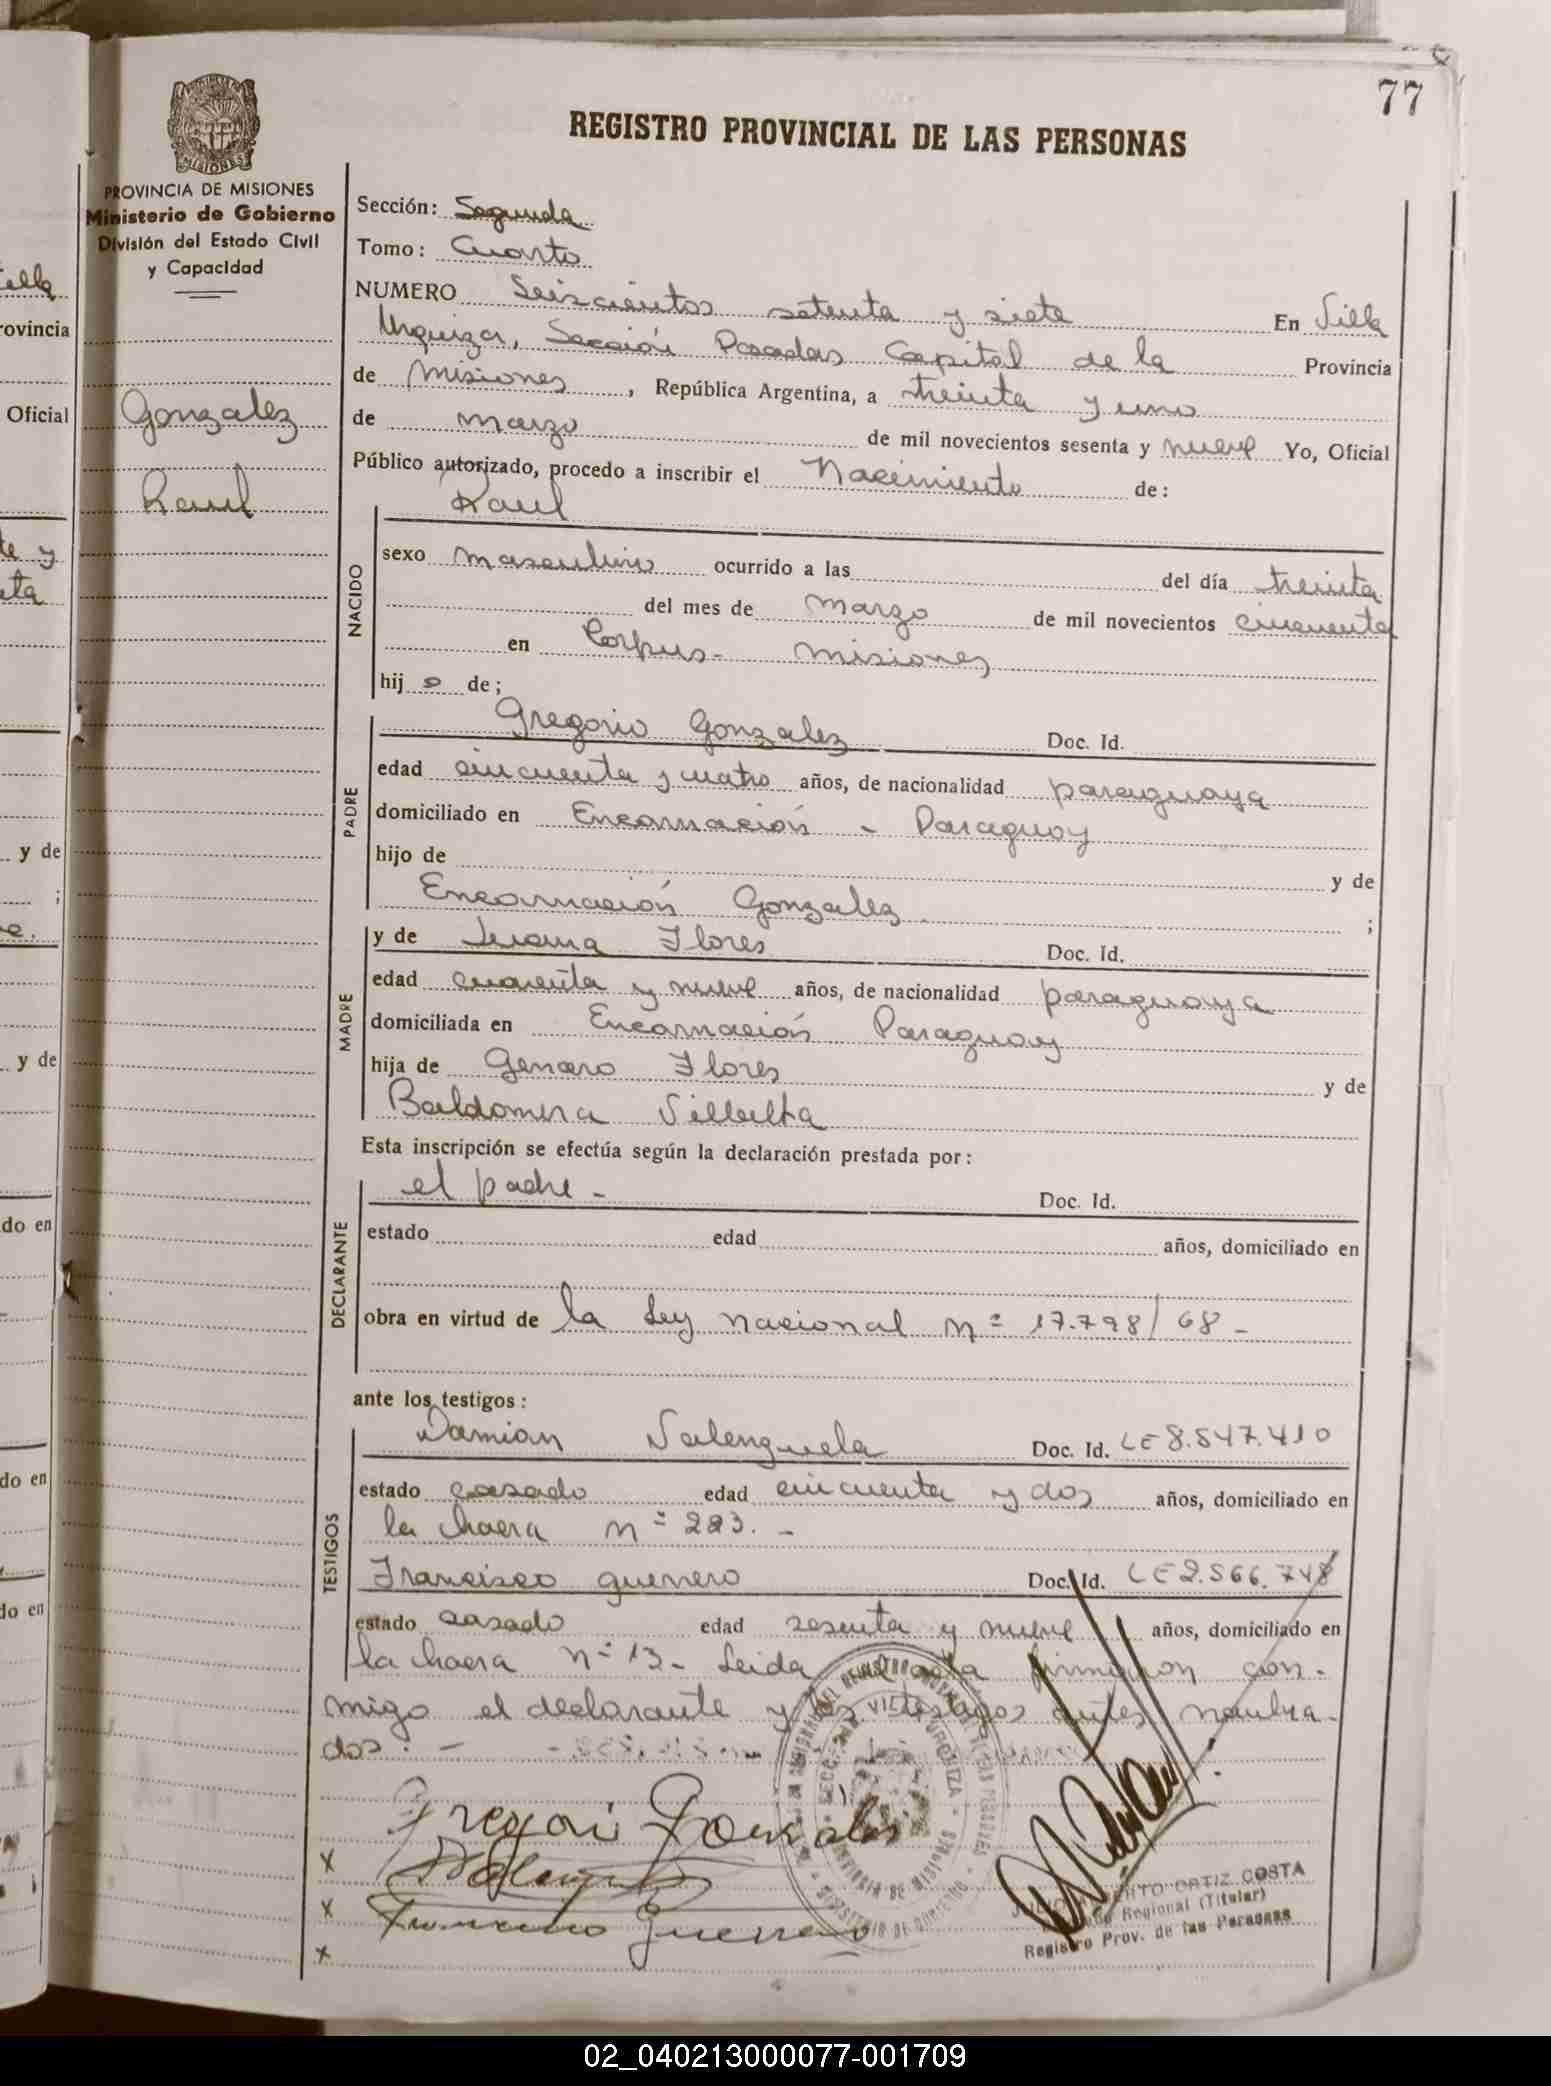 77
REGISTRO PROVINCIAL DE LAS PERSONAS
PROVINCIA DE MISIONES
Ministerio de Gobierno
División del Estado Civil
y Capacidad
Gonzalez
Raul
Sección: Segunda
Tomo: Cuarto
NUMERO Seiscientos setenta y siete En Villa
Urquiza, Sección Posadas Capital de la Provincia
de Misiones, República Argentina, a treinta y uno
de marzo de mil novecientos sesenta y nueve Yo, Oficial
Público autorizado, procedo a inscribir el Nacimiento de:
Raul
NACIDO
sexo masculino ocurrido a las del día treinta
del mes de marzo de mil novecientos cincuenta
en Corpus - Misiones
hij o de;
PADRE
Gregorio Gonzalez Doc. Id.
edad cincuenta y cuatro años, de nacionalidad paraguaya
domiciliado en Encarnación - Paraguay
hijo de y de
Encarnación Gonzalez. ;
MADRE
y de Juana Flores Doc. Id.
edad cuarenta y nueve años, de nacionalidad paraguaya
domiciliada en Encarnación Paraguay
hija de Genaro Flores y de
Baldomera Villalta
Esta inscripción se efectúa según la declaración prestada por:
DECLARANTE
el padre - Doc. Id.
estado edad años, domiciliado en
obra en virtud de la Ley nacional nº 17.798/68 -
ante los testigos:
TESTIGOS
Damian Valenzuela Doc. Id. LE 8.547.410
estado casado edad cincuenta y dos años, domiciliado en
la chacra nº 223. -
Francisco Guerrero Doc. Id. LE 2.566.748
estado casado edad sesenta y nueve años, domiciliado en
la chacra nº 13 - Leida el acta firmaron con-
migo el declarante y los testigos antes nombra-
dos. -
Gregori Gonzales
x
x Francisco Guerrero
x
JULIO ALBERTO ORTIZ COSTA
Regional (Titular)
Registro Prov. de las Personas
ella
rovincia
Oficial
y de
y de
do en
do en
do en
02_040213000077-001709